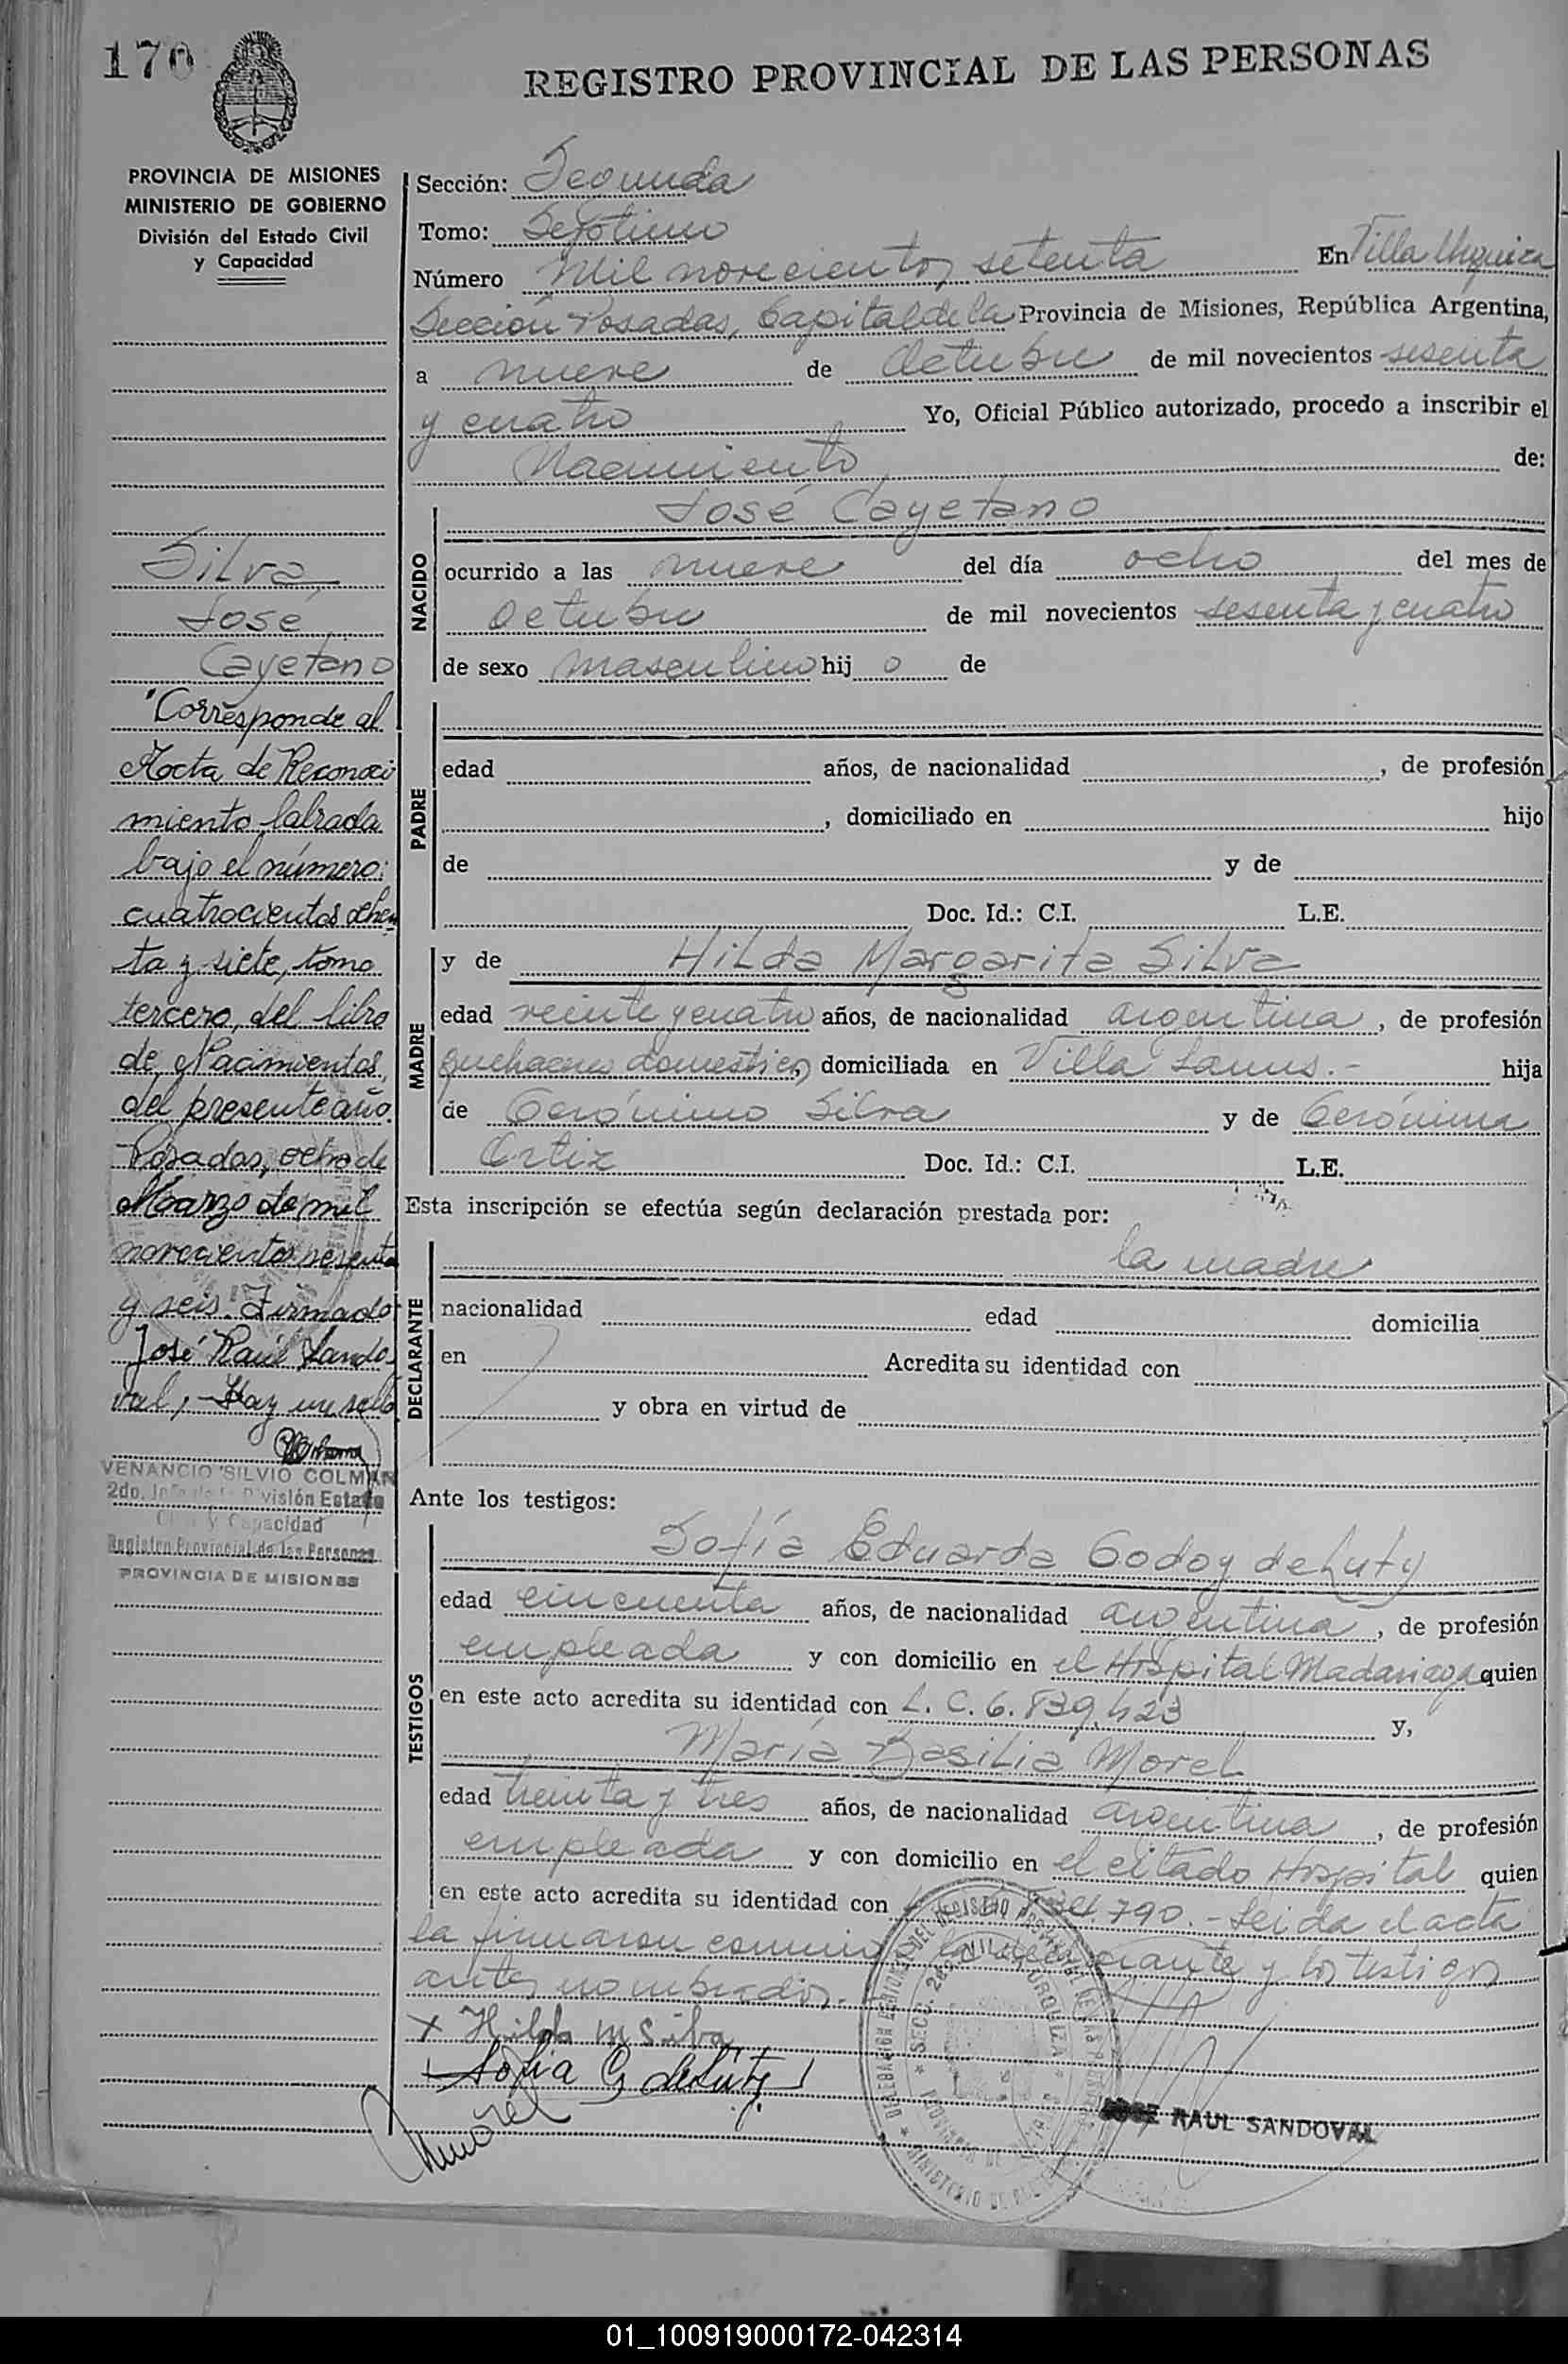 170
REGISTRO PROVINCIAL DE LAS PERSONAS
PROVINCIA DE MISIONES
MINISTERIO DE GOBIERNO
División del Estado Civil
y Capacidad
Silva,
José
Cayetano
"Corresponde al
Acta de Reconoci
miento labrada
bajo el número:
cuatrocientos ochen
ta y siete, tomo
tercero, del libro
de Nacimientos,
del presente año.
Posadas, ocho de
Marzo de mil
novecientos sesenta
y seis. Firmado
José Raúl Sando
val, - Hay un sello
VENANCIO SILVIO COLMAN
2do. Jefe de la División Estado
Civil y Capacidad
Registro Provincial de las Personas
PROVINCIA DE MISIONES
Sección: Segunda
Tomo: Septimo
Número Mil novecientos setenta En Villa Urquiza
Sección Posadas, Capital de la Provincia de Misiones, República Argentina,
a nueve de Octubre de mil novecientos sesenta
y cuatro Yo, Oficial Público autorizado, procedo a inscribir el
Nacimiento de:
José Cayetano
NACIDO
ocurrido a las nueve del día ocho del mes de
Octubre de mil novecientos sesenta y cuatro
de sexo masculino hij o de
PADRE
edad años, de nacionalidad , de profesión
, domiciliado en hijo
de y de
Doc. Id.: C.I. L.E.
MADRE
y de Hilda Margarita Silva
edad veinte y cuatro años, de nacionalidad argentina, de profesión
quehaceres domesticos domiciliada en Villa Lanus.- hija
de Gerónimo Silva y de Gerónima
Ortiz Doc. Id.: C.I. L.E.
Esta inscripción se efectúa según declaración prestada por:
la madre
DECLARANTE
nacionalidad edad domicilia
en Acredita su identidad con
y obra en virtud de
Ante los testigos:
TESTIGOS
Sofía Eduarda Godoy de Luty
edad cincuenta años, de nacionalidad argentina, de profesión
empleada y con domicilio en el Hospital Madariaga quien
en este acto acredita su identidad con L.C. 6.839.423 y,
María Basilia Morel
edad treinta y tres años, de nacionalidad argentina, de profesión
empleada y con domicilio en el citado Hospital quien
en este acto acredita su identidad con 790.- Leida el acta
la firmaron conmigo la declarante y los testigos
antes nombrados.-
x Hilda M Silva
Sofia G de Luty
Morel
JOSE RAUL SANDOVAL
01_100919000172-042314